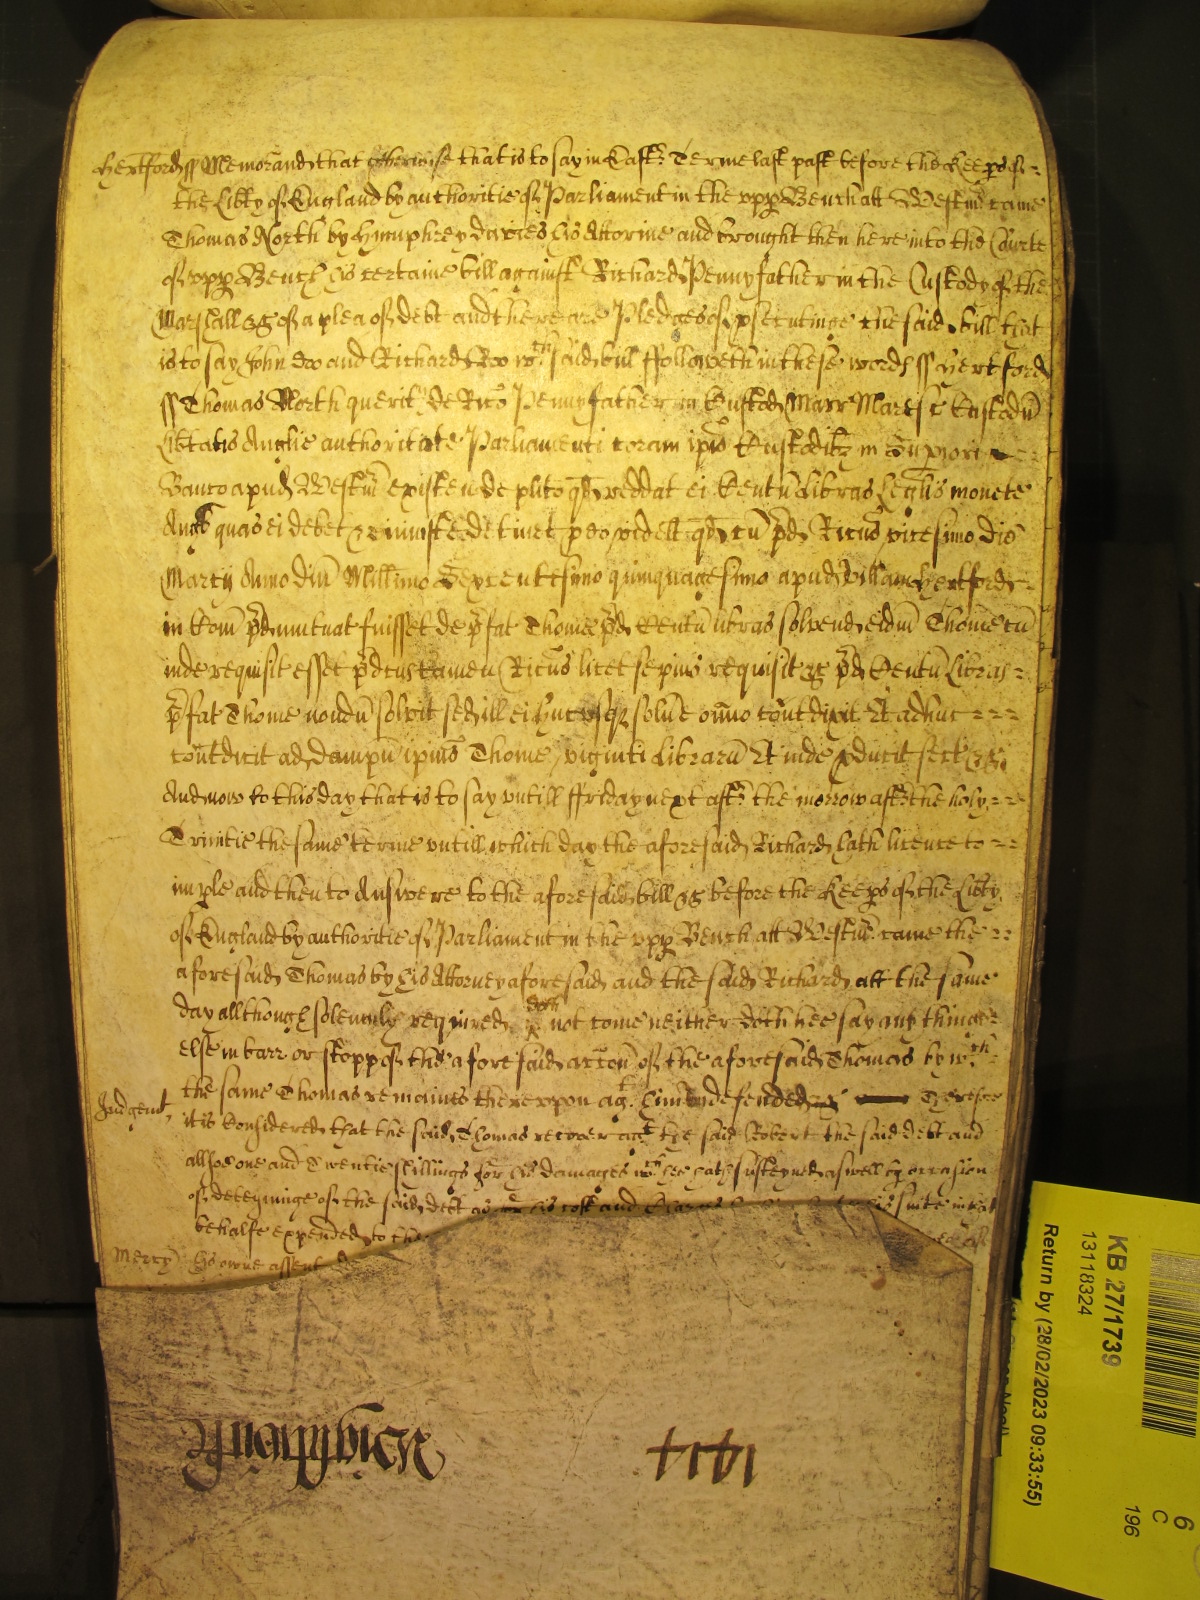 Hertford ss Memorand that otherwise that is to say in East Terme last past before the Keeps of
the Libty of England by authoritie of Parliament in the upp Bench att Westm came
Thomas North by Humphrey davies his Attorine and brought then here into the Courte
of upp Bench his certaine bill against Richard Pennyfather in the Custody of the
Marshall &c of a plea of debt and there are Pledges of psecutinge the said bill that
is to say John Doo and Richard Roo wch said bill ffolloweth in these words ss Hertford
ss Thomas North querit de Rico Pennyfather in Custod Marr Maresc Custodu
Libtatis Anglie authoritate Parliamenti coram ipis Custodibz in Supiori
Banco apud Westm existen de plito qd reddat ei Centu Libras legalis monete
Angl quas ei debet & iniuste detinet p eo videlt qd cu pd Ricus vicesimo die
Marcij Anno dni Millimo Sexcentesimo quinquagesimo apud villam Hertford
in Com pd mutuat fuisset de pfat Thome pd Centu libras solvend eidm Thome cu
inde requisit esset pdcus tamen Ricus licet sepius requisit &c pd Centu Libras
pfat Thome nondu solvit sed ill ei hucusqz solve omnno contdixit Et adhuc
contdicit ad dampnu ipius Thome viginti Libraru Et inde pducit sect &c
And now to this day that is to say untill ffriday next aftr the morrow aftr the holy
Trinitie the same terme untill which day the aforesaid Richard hath licence to
imple and then to Answere to the aforesaid bill &c before the Keeps of the Libty
of England by authoritie of Parliament in the upp Bench att Westm came the
aforesaid Thomas by his Attorney aforesaid and the said Richard att the same
day allthough solemnly required doth not come neither doth hee say any thinge
else in barr or stopp of the aforesaid accon of the aforesaid Thomas by wch
the same Thomas remaines thereupon agt him undefended Therefore
Judgent
it is Considered that the said Thomas recover agt the said Robert the said debt and
allsoe one and Twentie shillings for his damages wch hee hath susteyned aswell by occasion
of deteyninge of the said debt as for his cost and suite in that
behalfe expended to the
Mercy his owne assent
1414
KB 27/1739
13118324
Return by (28/02/2023 09:33:55)
6
C
196